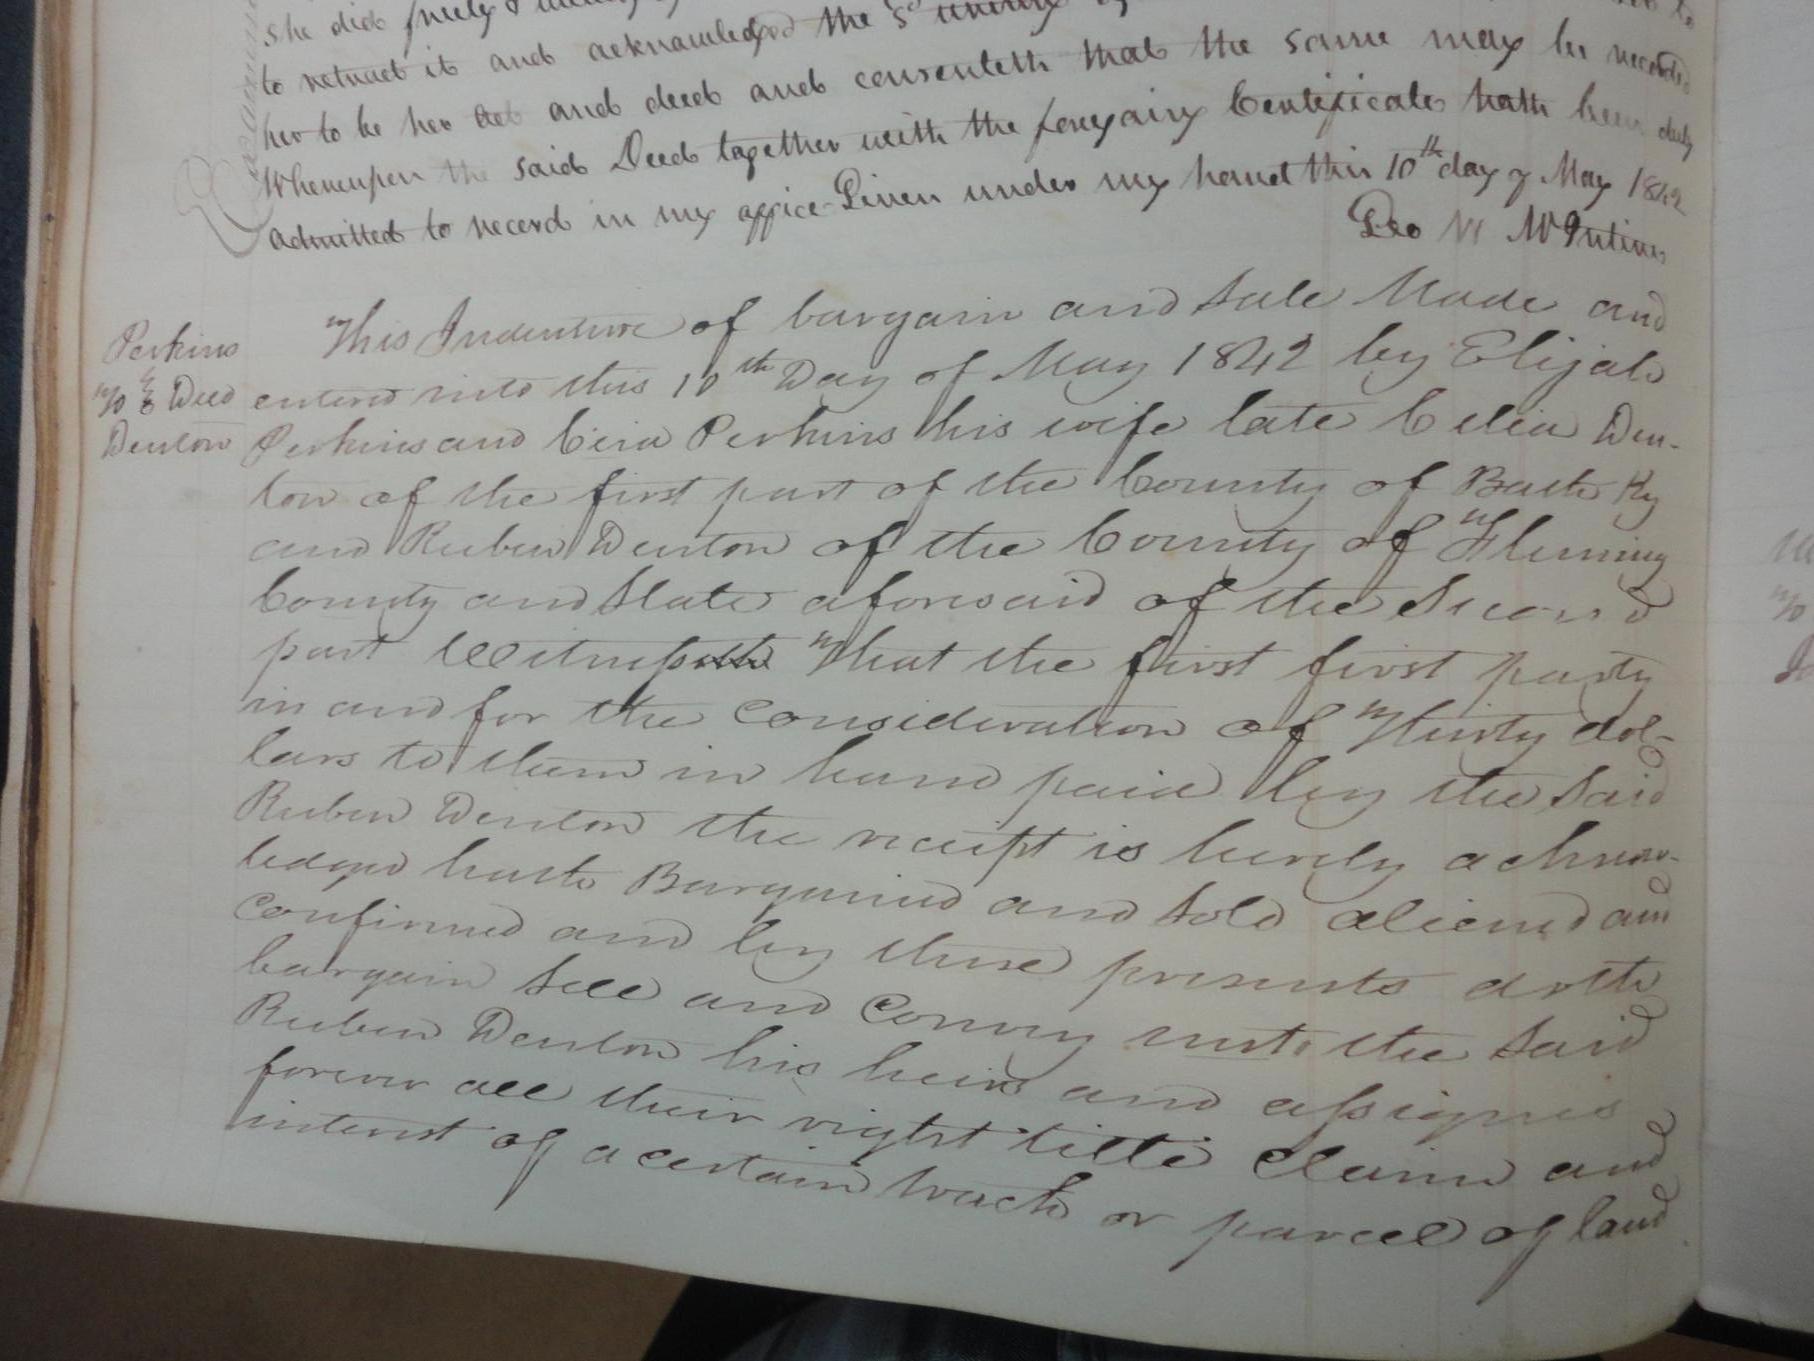 she did freely &
to retract it and acknowledged the sd
her to be her act and deed and consenteth that the same may be recorded
Whereupon the said Deed together with the foregoing Certificate hath been duly
admitted to record in my office Given under my hand this 10th day of May 1842
Geo W
This Indenture of bargain and Sale Made and
Perkins
entered into this 10th Day of May 1842 by Elijah
To Deed
Perkins and Ciria Perkins his wife late Celia Den-
Denton
ton of the first part of the County of Bath Ky
and Reuben Denton of the County of Fleming
County and State aforesaid of the Second
part Witnesseth That the first first party
in and for the Consideration of Thirty dol-
lars to them in hand paid by the Said
Reuben Denton the receipt is hereby acknow-
ledged hath Bargained and Sold aliened and
Confirmed and by these presents doth
bargain Sell and Convey unto the Said
Reuben Denton his heirs and assignes
forever all their right title Claim and
interest of a certain track or parcel of land